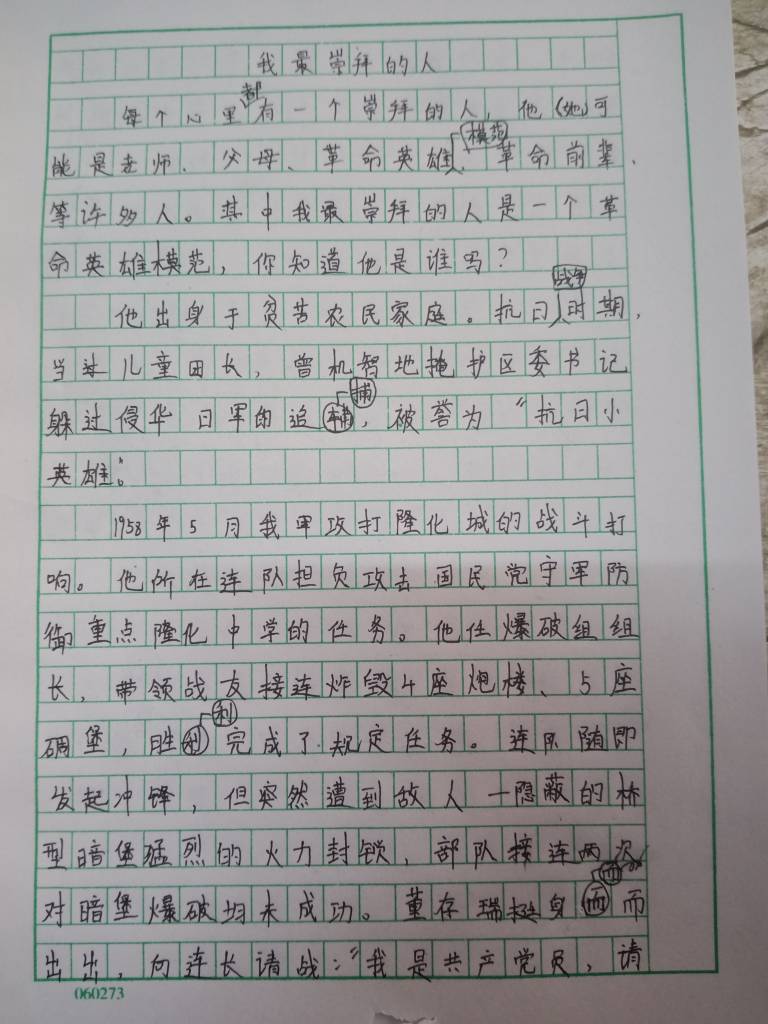 我最崇拜的人
每个心里都有一个崇拜的人，他（她）可
能是老师、父母、革命英雄模范、革命前辈、
等许多人。其中我最崇拜的人是一个革
命英雄模范，你知道他是谁吗？
他出身于贫苦农民家庭。抗日战争时期，
当过儿童团长，曾机智地掩护区委书记
躲过侵华日军的追捕，被誉为“抗日小
英雄”。
1958年5月我军攻打隆化城的战斗打
响。他所在连队担负攻击国民党守军防
御重点隆化中学的任务。他任爆破组组
长，带领战友接连炸毁4座炮楼、5座
碉堡，胜利完成了规定任务。连队随即
发起冲锋，但突然遭到敌人一隐蔽的桥
型暗堡猛烈的火力封锁，部队接连两次
对暗堡爆破均未成功。董存瑞挺身而而
出出，向连长请战：“我是共产党员，请
060273